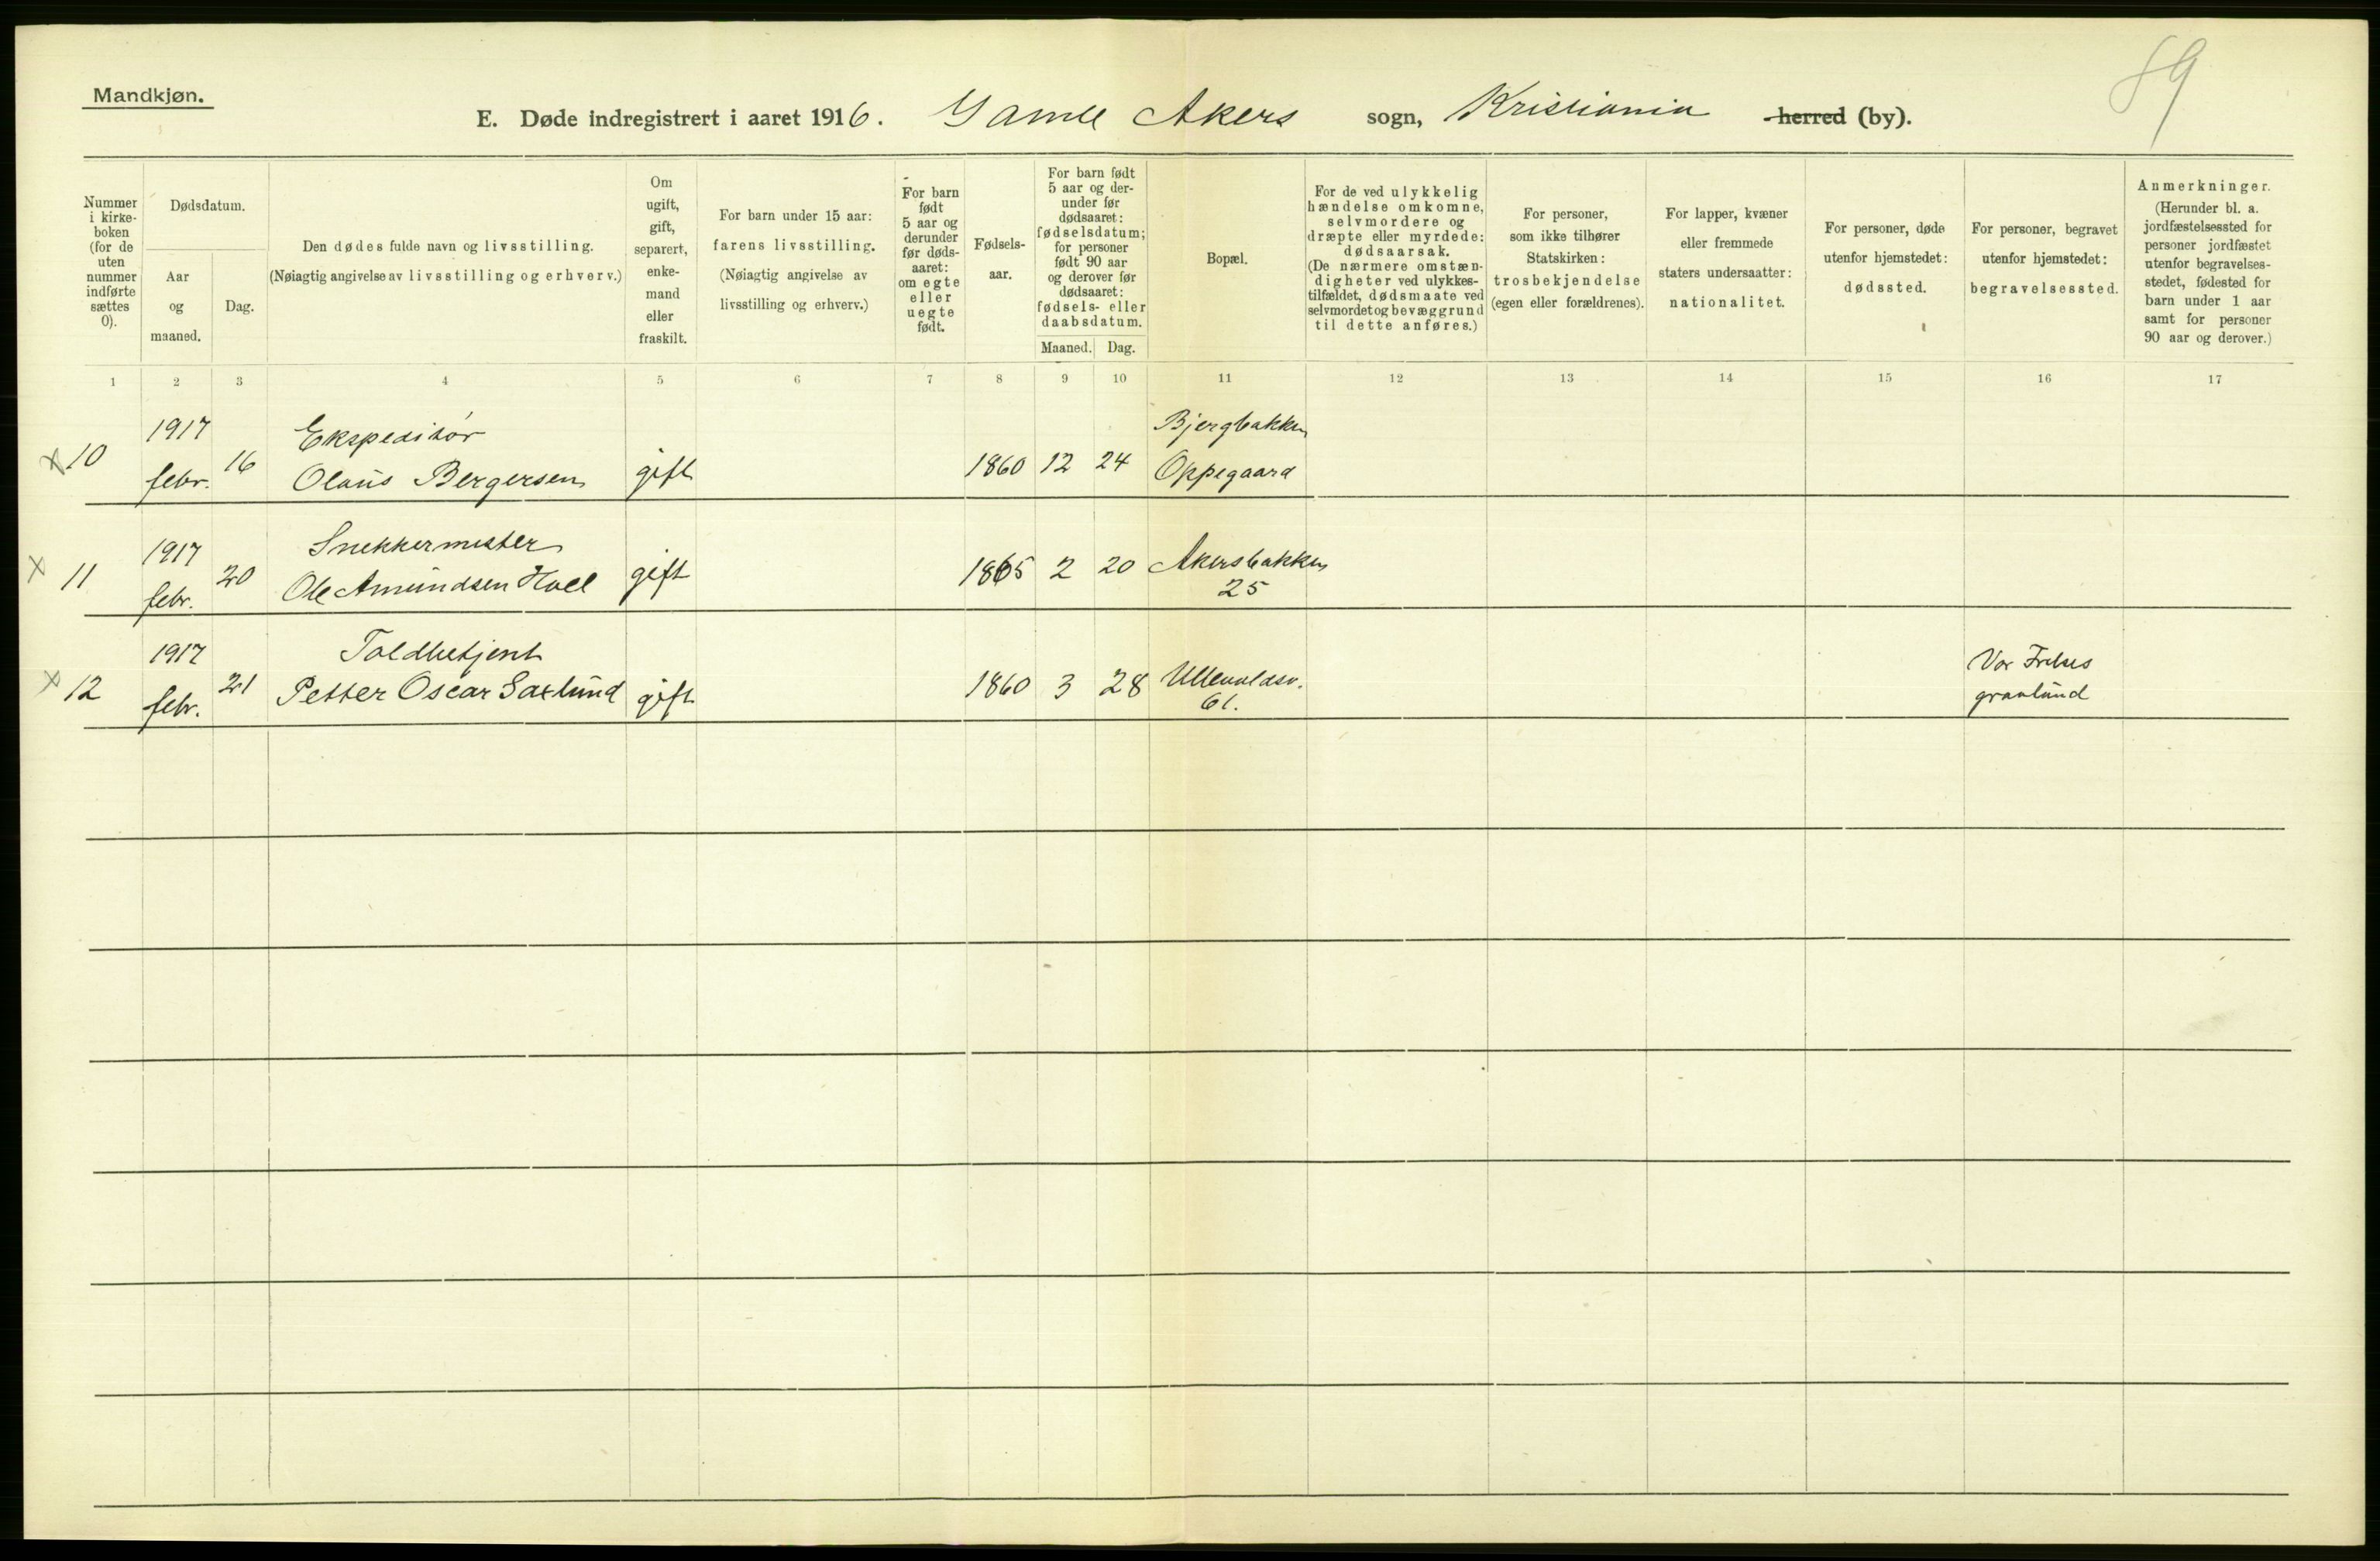 89
Mandkjøn.
E. Døde indregistrert i aaret 1916. Gamle Akers sogn, Kristiania herred (by).
Nummer i kirke-boken (for de uten nummer indførte sættes 0).
Dødsdatum.
Aar og maaned.
Dag.
Den dødes fulde navn og livsstilling.
(Nøiagtig angivelse av livsstilling og erhverv.)
Om ugift, gift, separert, enke-mand eller fraskilt.
For barn under 15 aar:
farens livsstilling.
(Nøiagtig angivelse av livsstilling og erhverv.)
For barn født 5 aar og derunder før døds-aaret: om egte eller uegte født.
Fødsels-aar.
For barn født 5 aar og der-under før dødsaaret: fødselsdatum; for personer født 90 aar og derover før dødsaaret: fødsels- eller daabsdatum.
Maaned. Dag.
Bopæl.
For de ved ulykkelig hændelse omkomne, selvmordere og dræpte eller myrdede: dødsaarsak.
(De nærmere omstæn-digheter ved ulykkes-tilfældet, dødsmaate ved selvmordet og bevæggrund til dette anføres.)
For personer, som ikke tilhører Statskirken: trosbekjendelse (egen eller forældrenes).
For lapper, kvæner eller fremmede staters undersaatter: nationalitet.
For personer, døde utenfor hjemstedet: dødssted.
For personer, begravet utenfor hjemstedet: begravelsessted.
Anmerkninger.
(Herunder bl. a. jordfæstelsessted for personer jordfæstet utenfor begravelses-stedet, fødested for barn under 1 aar samt for personer 90 aar og derover.)
1 2 3 4 5 6 7 8 9 10 11 12 13 14 15 16 17
1917 Ekspeditør Bjergbakken
x 10 febr. 16 Olaus Bergersen gift 1860 12 24 Oppegaard
1917 Snekkermester
x 11 febr. 20 Ole Amundsen Hoel gift 1865 2 20 Akersbakken 25
1917 Toldbetjent Vor Frelses
x 12 febr. 21 Petter Oscar Saxlund gift 1860 3 28 Ullevoldsv. 61. gravlund